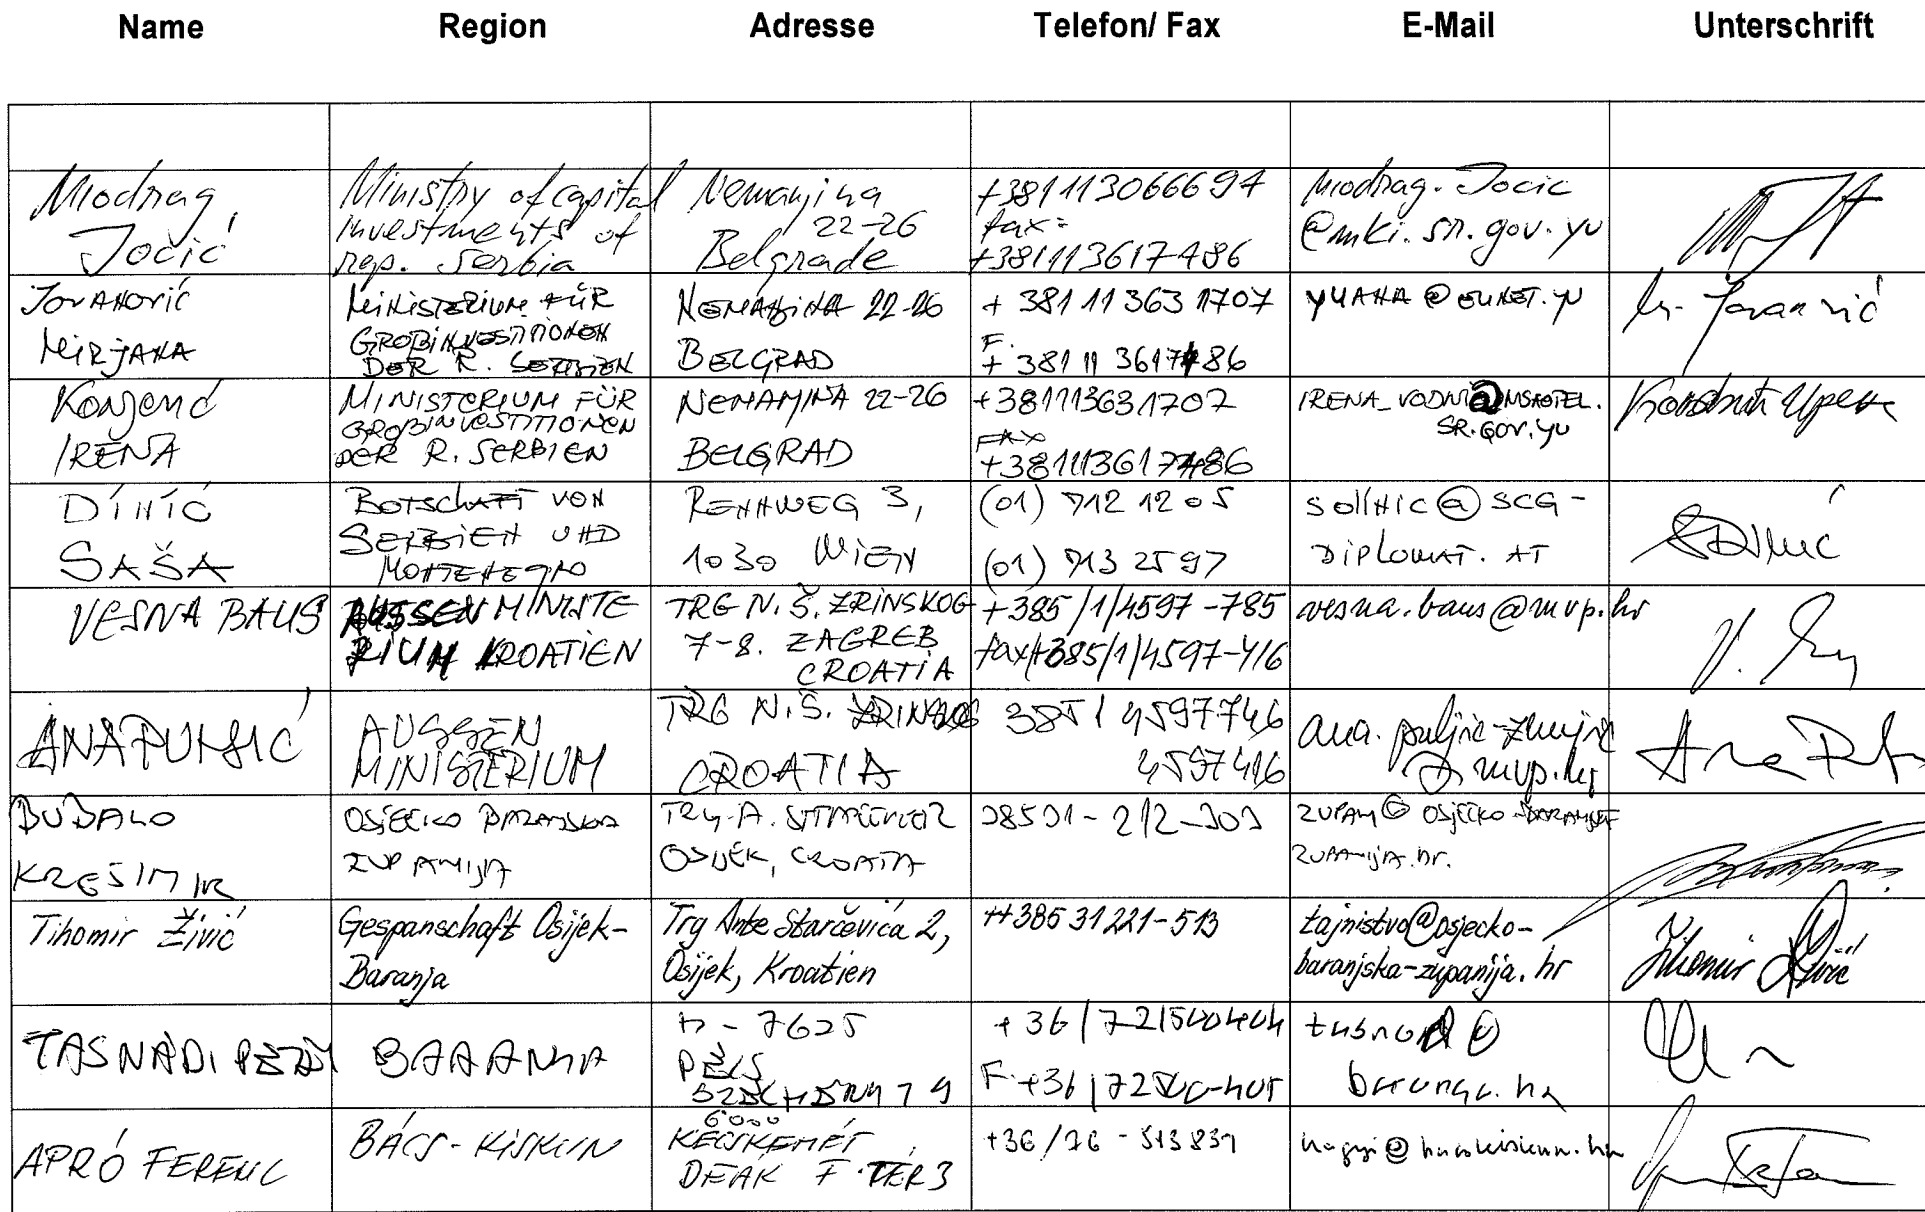 Name Region Adresse Telefon/ Fax E-Mail Unterschrift
Miodrag Jocić
Ministry of capital
investments of
rep. Serbia
Nemanjina
22-26
Belgrade
+381113066697
fax:
+381113617486
miodrag.Jocic
@mki.sr.gov.yu
Jovanović
Mirjana
Ministerium für
Großinvestitionen
der R. Serbien
Nemanjina 22-26
Belgrad
+ 381 11 363 1707
F.
+ 381 11 3617486
yuana@eunet.yu
M. Jovanović
IRENA
MINISTERIUM FÜR
GROßINVESTITIONEN
DER R. SERBIEN
NEMANJINA 22-26
BELGRAD
+381113631707
FAX
+381113617486
SR.GOV.YU
Dinić
Saša
Botschaft von
Serbien und
Montenegro
Rennweg 3,
1030 Wien
(01) 712 12 05
(01) 713 2597
SCG-
DIPLOMAT.AT
VESNA BAUS
AUSSENMINISTE
RIUM KROATIEN
TRG N.Š. ZRINSKOG
7-8. ZAGREB
CROATIA
+385/1/4597-785
fax/+385/1/4597-416
vesna.baus@mvp.hr
ANA
AUSSEN
MINISTERIUM
TRG N.Š. ZRINSKOG
CROATIA
385 1 4597746
4597416
BUBALO
KREŠIMIR
OSJEČKO BARANJSKA
ŽUPANIJA
OSIJEK, CROATIA
Tihomir Živić
Gespanschaft Osijek-
Baranja
Trg Ante Starčevića 2,
Osijek, Kroatien
++385 31 221-513
tajnistvo@osjecko-
baranjska-zupanija.hr
Tihomir Živić
TASNÁDI
BARANYA
H-7625
PÉCS
APRÓ FERENC
BÁCS-KISKUN
6000
KECSKEMÉT
DEÁK F. TÉR 3
+36/76-513831